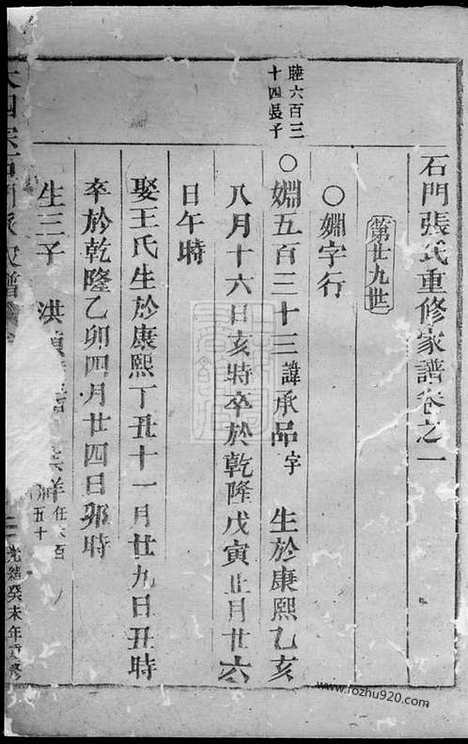 石門張氏重修家譜卷之一
第廿九世
○嫺字行
睦六百三
十四晟子
○嫺五百三十三諱承品字 生於康熙乙亥
八月十六日亥時卒於乾隆戊寅正月廿六
日午時
娶王氏生於康熙丁丑十一月廿九日丑時
卒於乾隆乙卯四月廿四日卯時
生三子 洪
任六百
五十
光緒癸未年重修
www.fozhu920.com